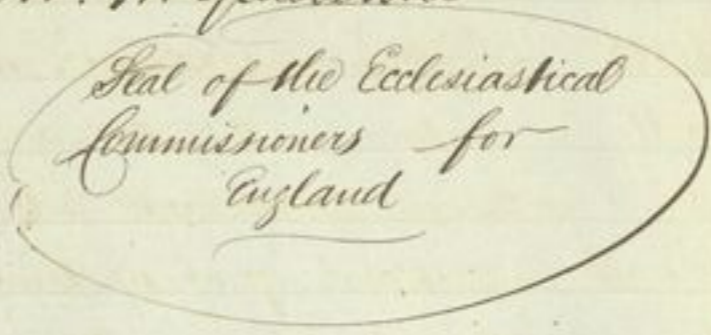 Seal of the Ecclesiastical
Commissioners for
England